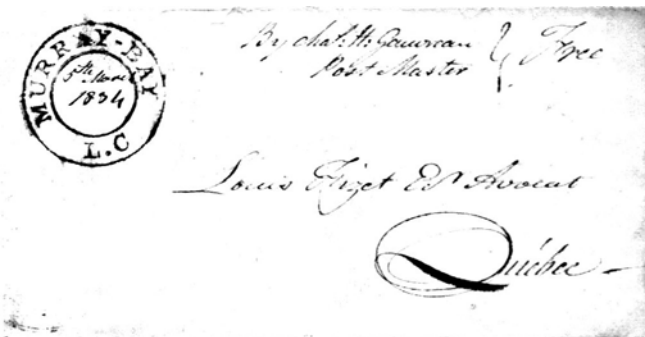 MURRAY-BAY
5th
1834
L.C
By Chas. H. Gauvreau
Post Master
Free
Louis Fizet Esr Avocat
Québec